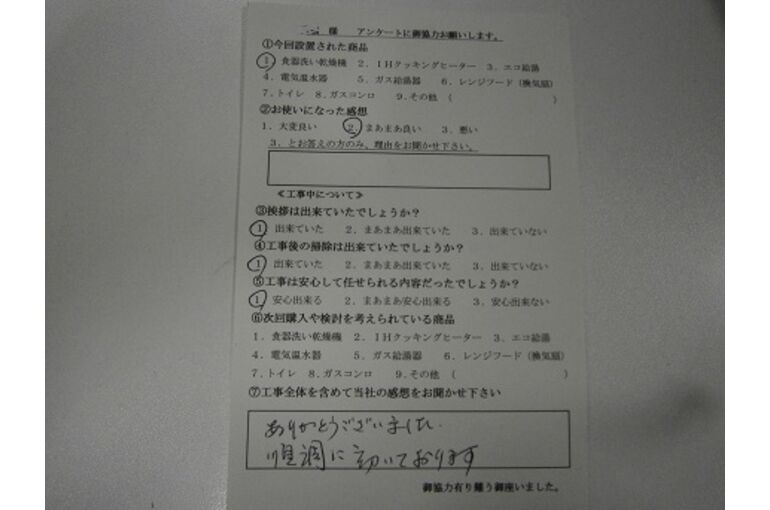 様　アンケートに御協力お願いします。
①今回設置された商品
1. 食器洗い乾燥機　2. IHクッキングヒーター　3. エコ給湯
4. 電気温水器　5. ガス給湯器　6. レンジフード（換気扇）
7. トイレ　8. ガスコンロ　9. その他（　）
②お使いになった感想
1. 大変良い　2. まあまあ良い　3. 悪い
3. とお答えの方のみ、理由をお聞かせ下さい。
≪工事中について≫
③挨拶は出来ていたでしょうか？
1 出来ていた　2. まあまあ出来ていた　3. 出来ていない
④工事後の掃除は出来ていたでしょうか？
1 出来ていた　2. まあまあ出来ていた　3. 出来ていない
⑤工事は安心して任せられる内容だったでしょうか？
1 安心出来る　2. まあまあ安心出来る　3. 安心出来ない
⑥次回購入や検討を考えられている商品
1. 食器洗い乾燥機　2. IHクッキングヒーター　3. エコ給湯
4. 電気温水器　5. ガス給湯器　6. レンジフード（換気扇）
7. トイレ　8. ガスコンロ　9. その他（　）
⑦工事全体を含めて当社の感想をお聞かせ下さい
ありがとうございました.
順調に動いております
御協力有り難う御座いました。